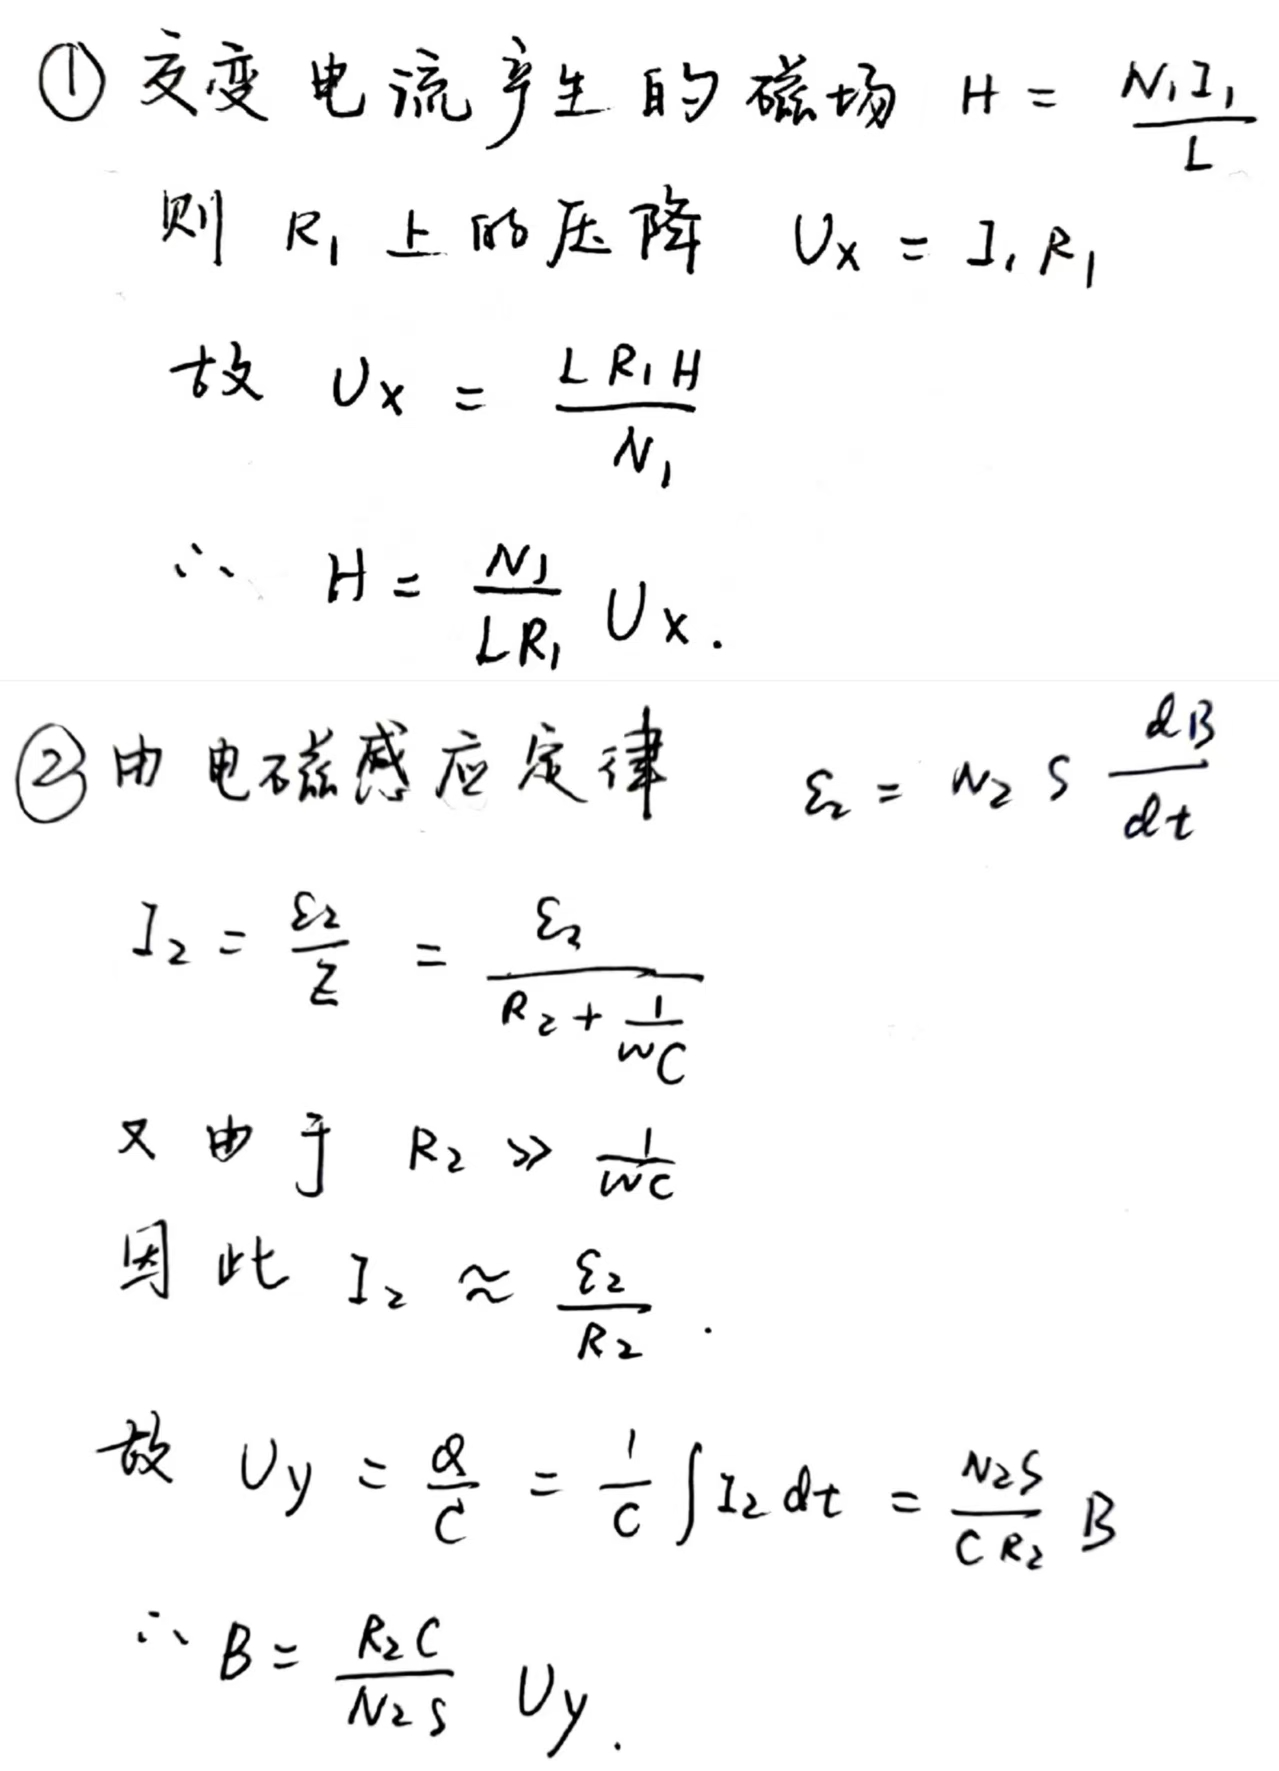 ① 交变电流产生的磁场 H = N₁I₁/L
则 R₁ 上的压降 Ux = I₁R₁
故 Ux = LR₁H/N₁
∴ H = N₁/LR₁ Ux.
② 由电磁感应定律 ε₂ = N₂ S dB/dt
I₂ = ε₂/Z = ε₂/(R₂ + 1/wC)
又由于 R₂ >> 1/wC
因此 I₂ ≈ ε₂/R₂ .
故 Uy = Q/C = 1/C ∫I₂dt = N₂S/CR₂ B
∴ B = R₂C/N₂S Uy.